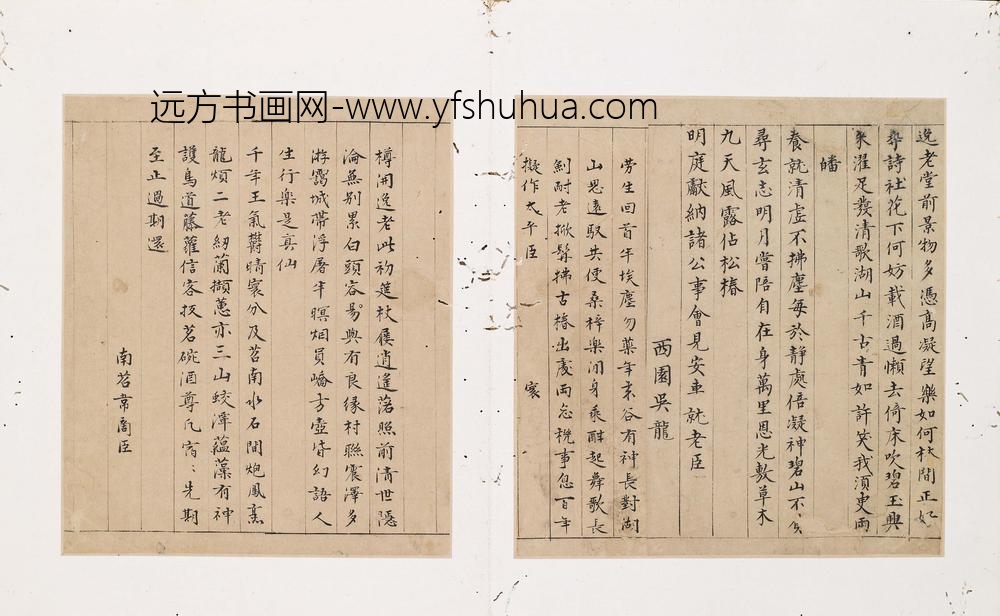 远方书画网-www.yfshuhua.com
逸老堂前景物多憑高凝望樂如何秋間正好
尋詩社花下何妨載酒過懶去倚床吹碧玉興
來濯足發清歌湖山千古青如許笑我須更兩
皤
養就清虛不拂塵每於靜處倍凝神碧山不
尋玄志明月嘗陪自在身萬里恩光敷草木
九天風露佔松椿
明庭獻納諸公事會見安車就老臣
西園吳龍
勞生回首半埃塵勿藥年來谷有神長對湖
山思遠馭共使桑梓樂閒身乘酣起舞歌長
劍耐老掀髯拂古椿出處兩忘稅事息百年
擬作太平臣
寰
樽開逸老此初筵杖屨逍遙落照前清世隱
淪無別累白頭容易興有良緣村聯震澤多
游霅城帶浮屠半暝烟員嶠方壺皆幻語人
生行樂是真仙
千年王氣鬱晴寰分及苕南水石間炮鳳烹
龍煩二老紉蘭擷蕙亦三山蛟潭蘊藻有神
護鳥道藤蘿信客扳茗碗酒尊凡宿ミ先期
至正過期還
南苕常商臣